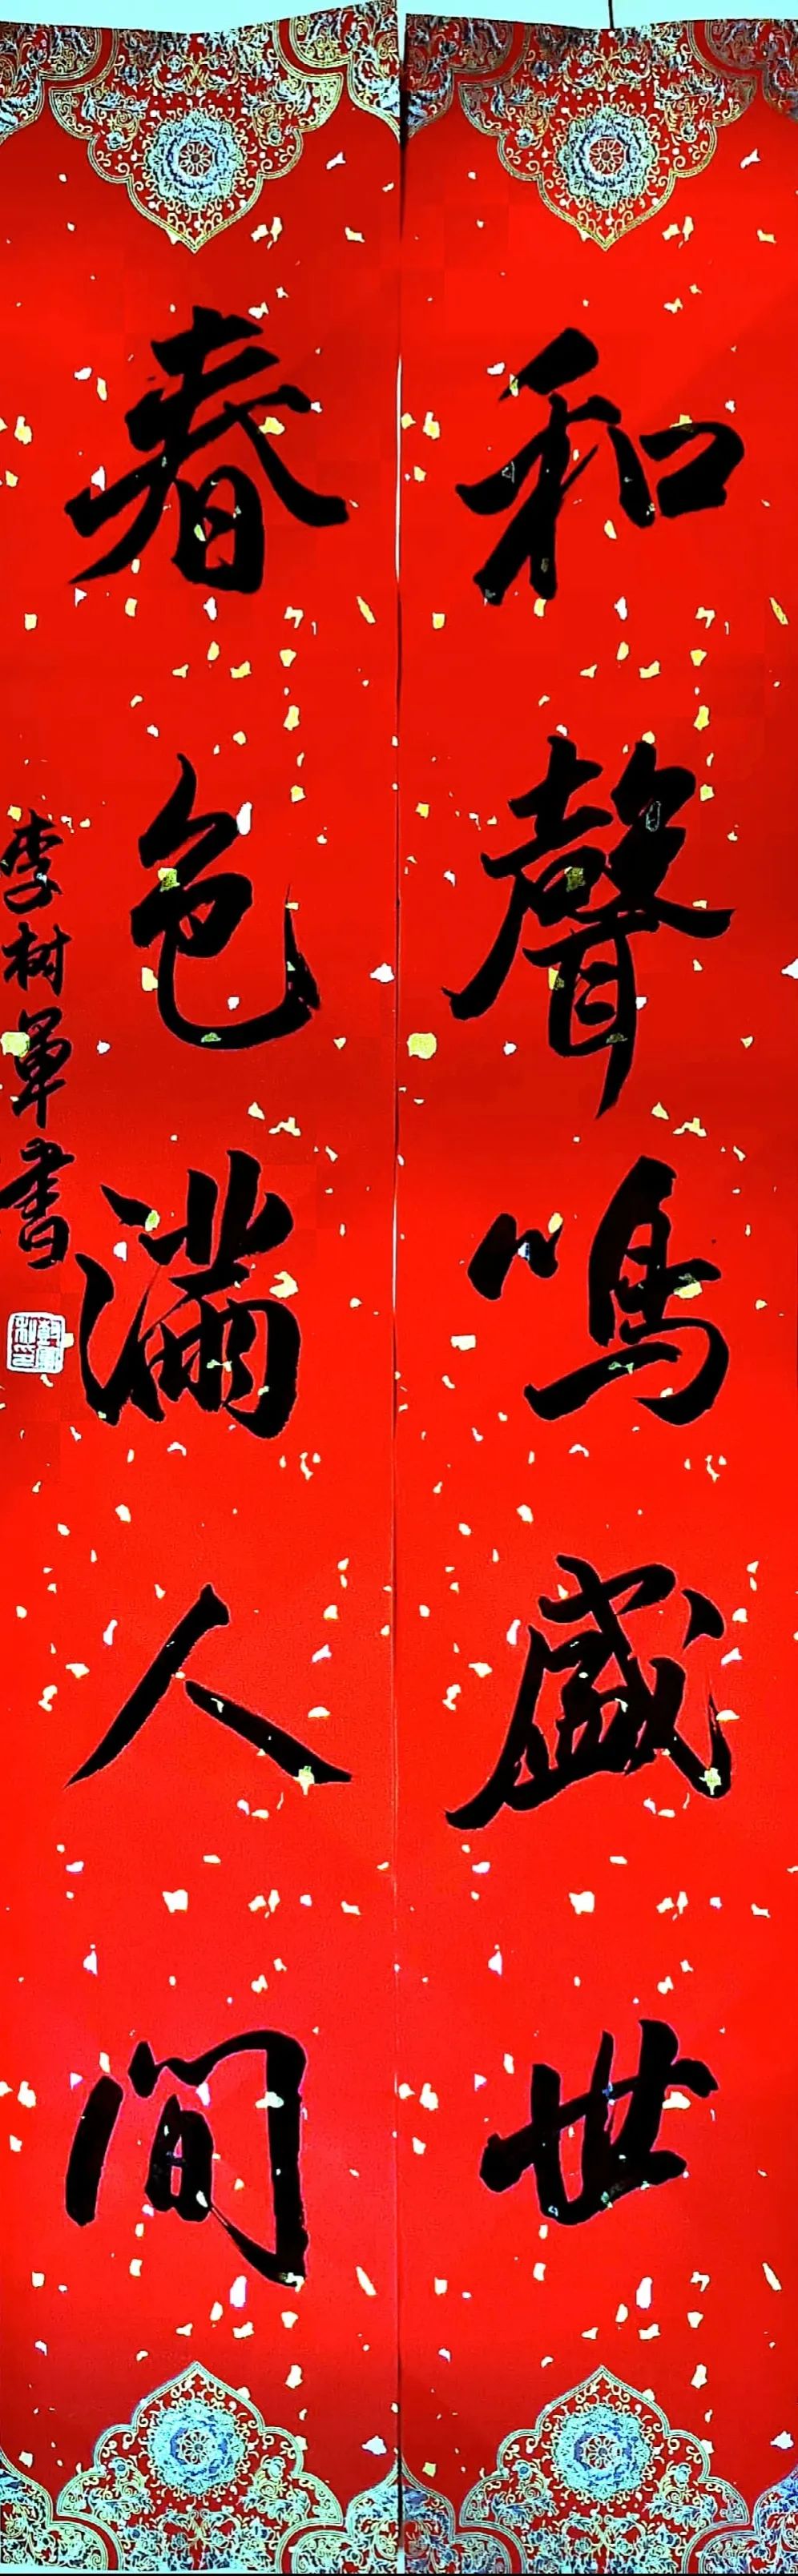 和聲鳴盛世
春色滿人间
李树單書